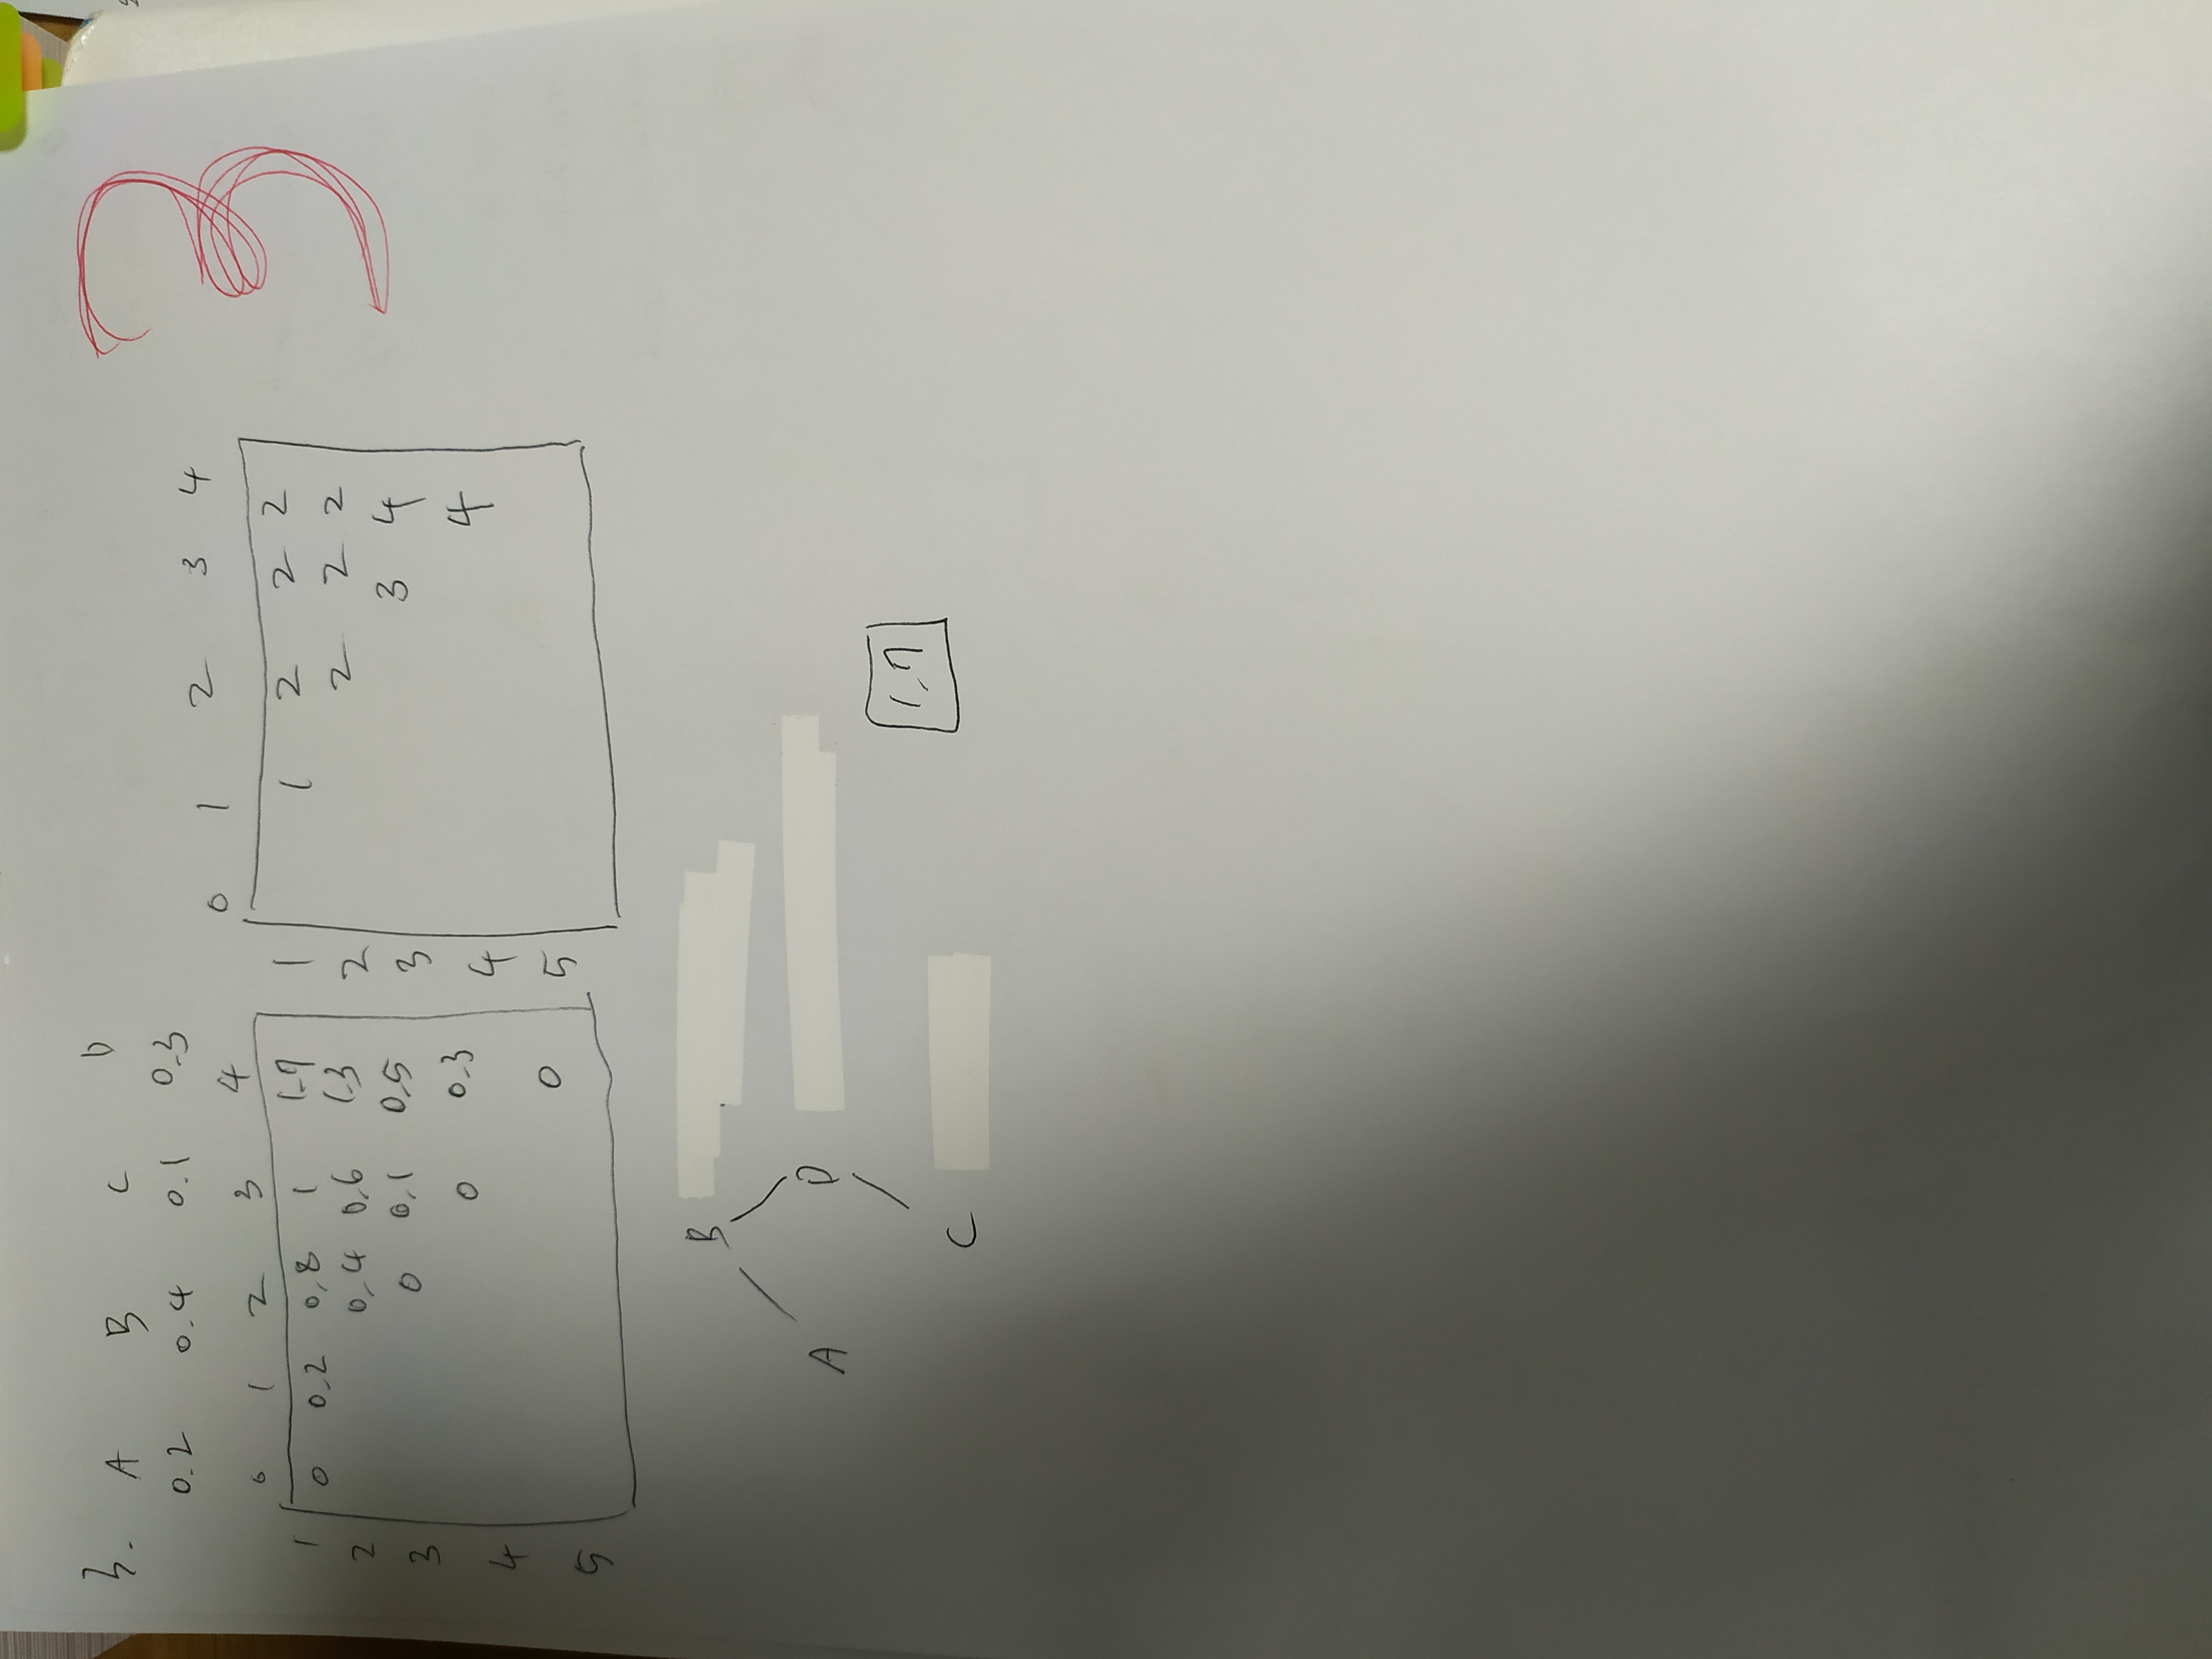 3. A B C D
0.2 0.4 0.1 0.3
0 1 2 3 4
1 0 0.2 0.8 1 1.7
2 0.4 0.6 1.3
3 0 0.1 0.5
4 0 0.3
5 0
0 1 2 3 4
1 1 2 2 2
2 2 2 2
3 3 4
4 4
5
3
B
A D
C
1.7